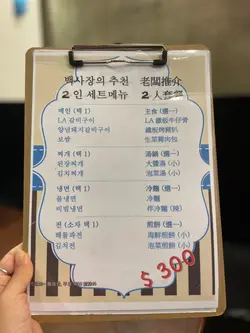 백사장의 추천 老闆推介
2인 세트메뉴 2人套餐
메인 (택 1) 主食 (選一)
LA 갈비구이 LA 鐵板牛仔骨
양념돼지갈비구이 鐵板烤豬扒
보쌈 生菜豬肉包
찌개 (택 1) 湯鍋 (選一)
된장찌개 大醬湯 (小)
김치찌개 泡菜湯 (小)
냉면 (택 1) 冷麵 (選一)
물냉면 冷麵
비빔냉면 冷麵 (辣)
전 (소자 택 1) 煎餅 (選一)
해물파전 海鮮煎餅 (小)
김치전 泡菜煎餅 (小)
$300